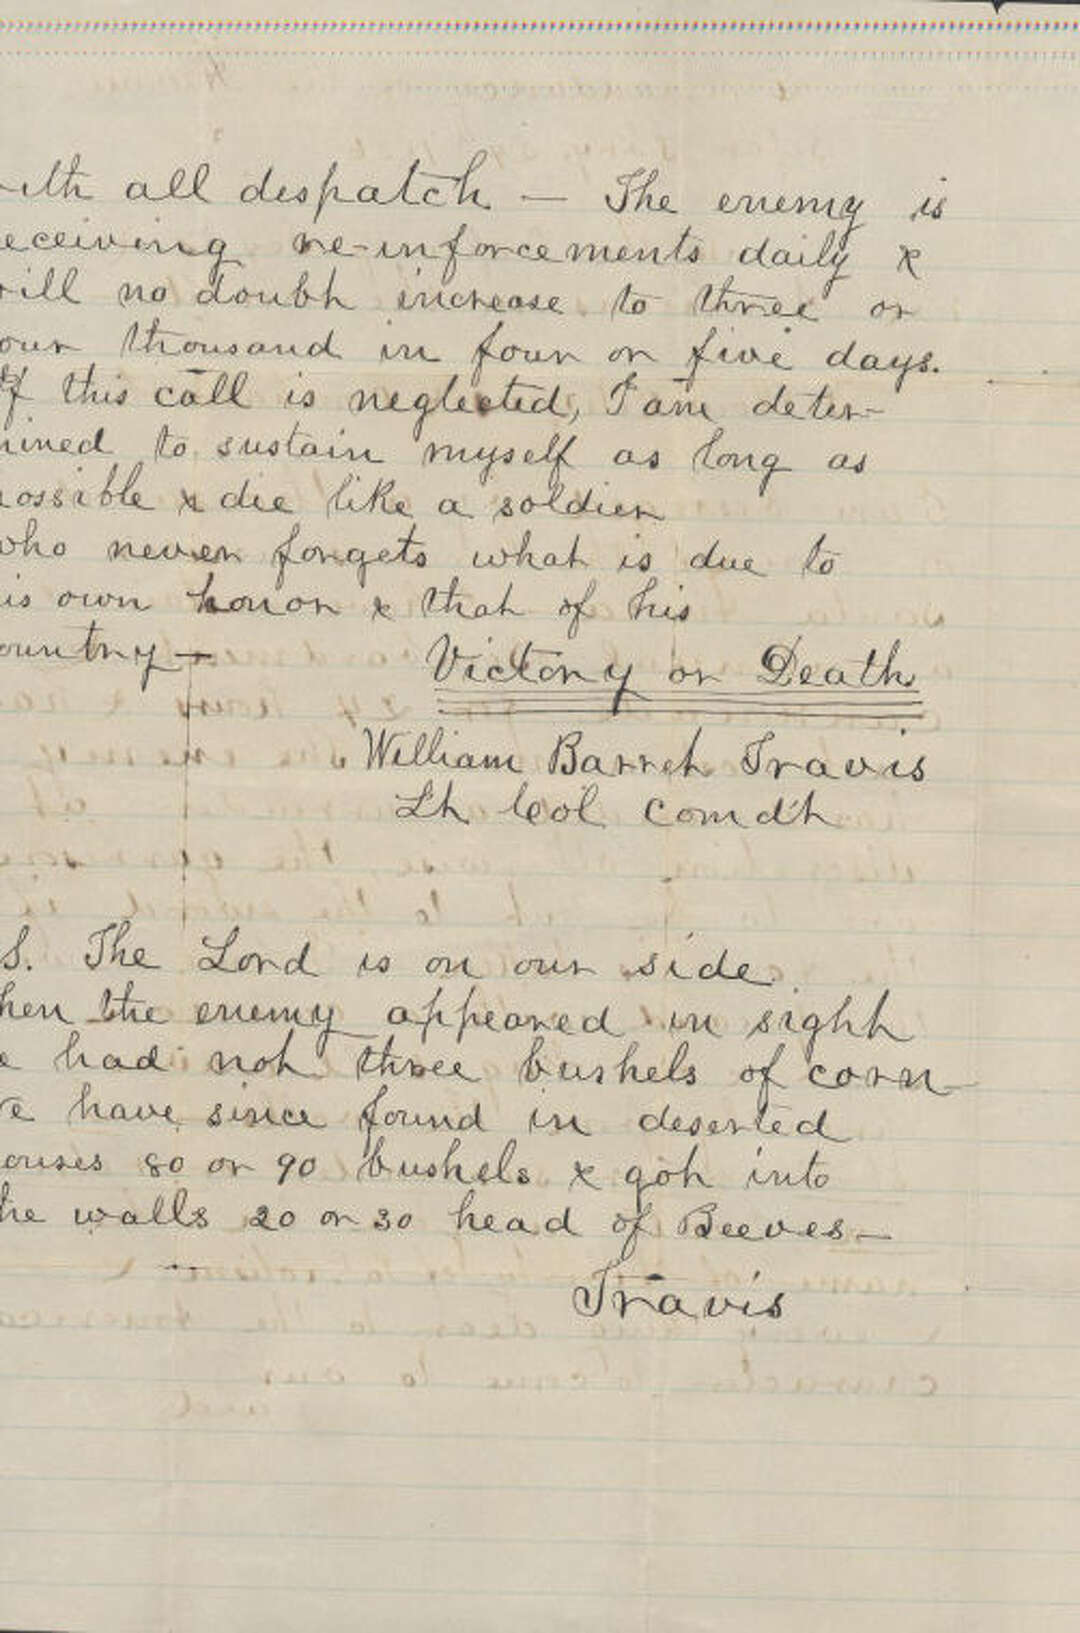 ith all despatch — The enemy is
eceiving re-inforcements daily &
ill no doubt increase to three or
our thousand in four or five days.
If this call is neglected, I am deter-
mined to sustain myself as long as
possible & die like a soldier
who never forgets what is due to
is own honor & that of his
ountry —
Victory or Death
William Barret Travis
Lt Col Comdt
S. The Lord is on our side.
hen the enemy appeared in sight
e had not three bushels of corn
e have since found in deserted
ouses 80 or 90 bushels & got into
the walls 20 or 30 head of Beeves —
Travis